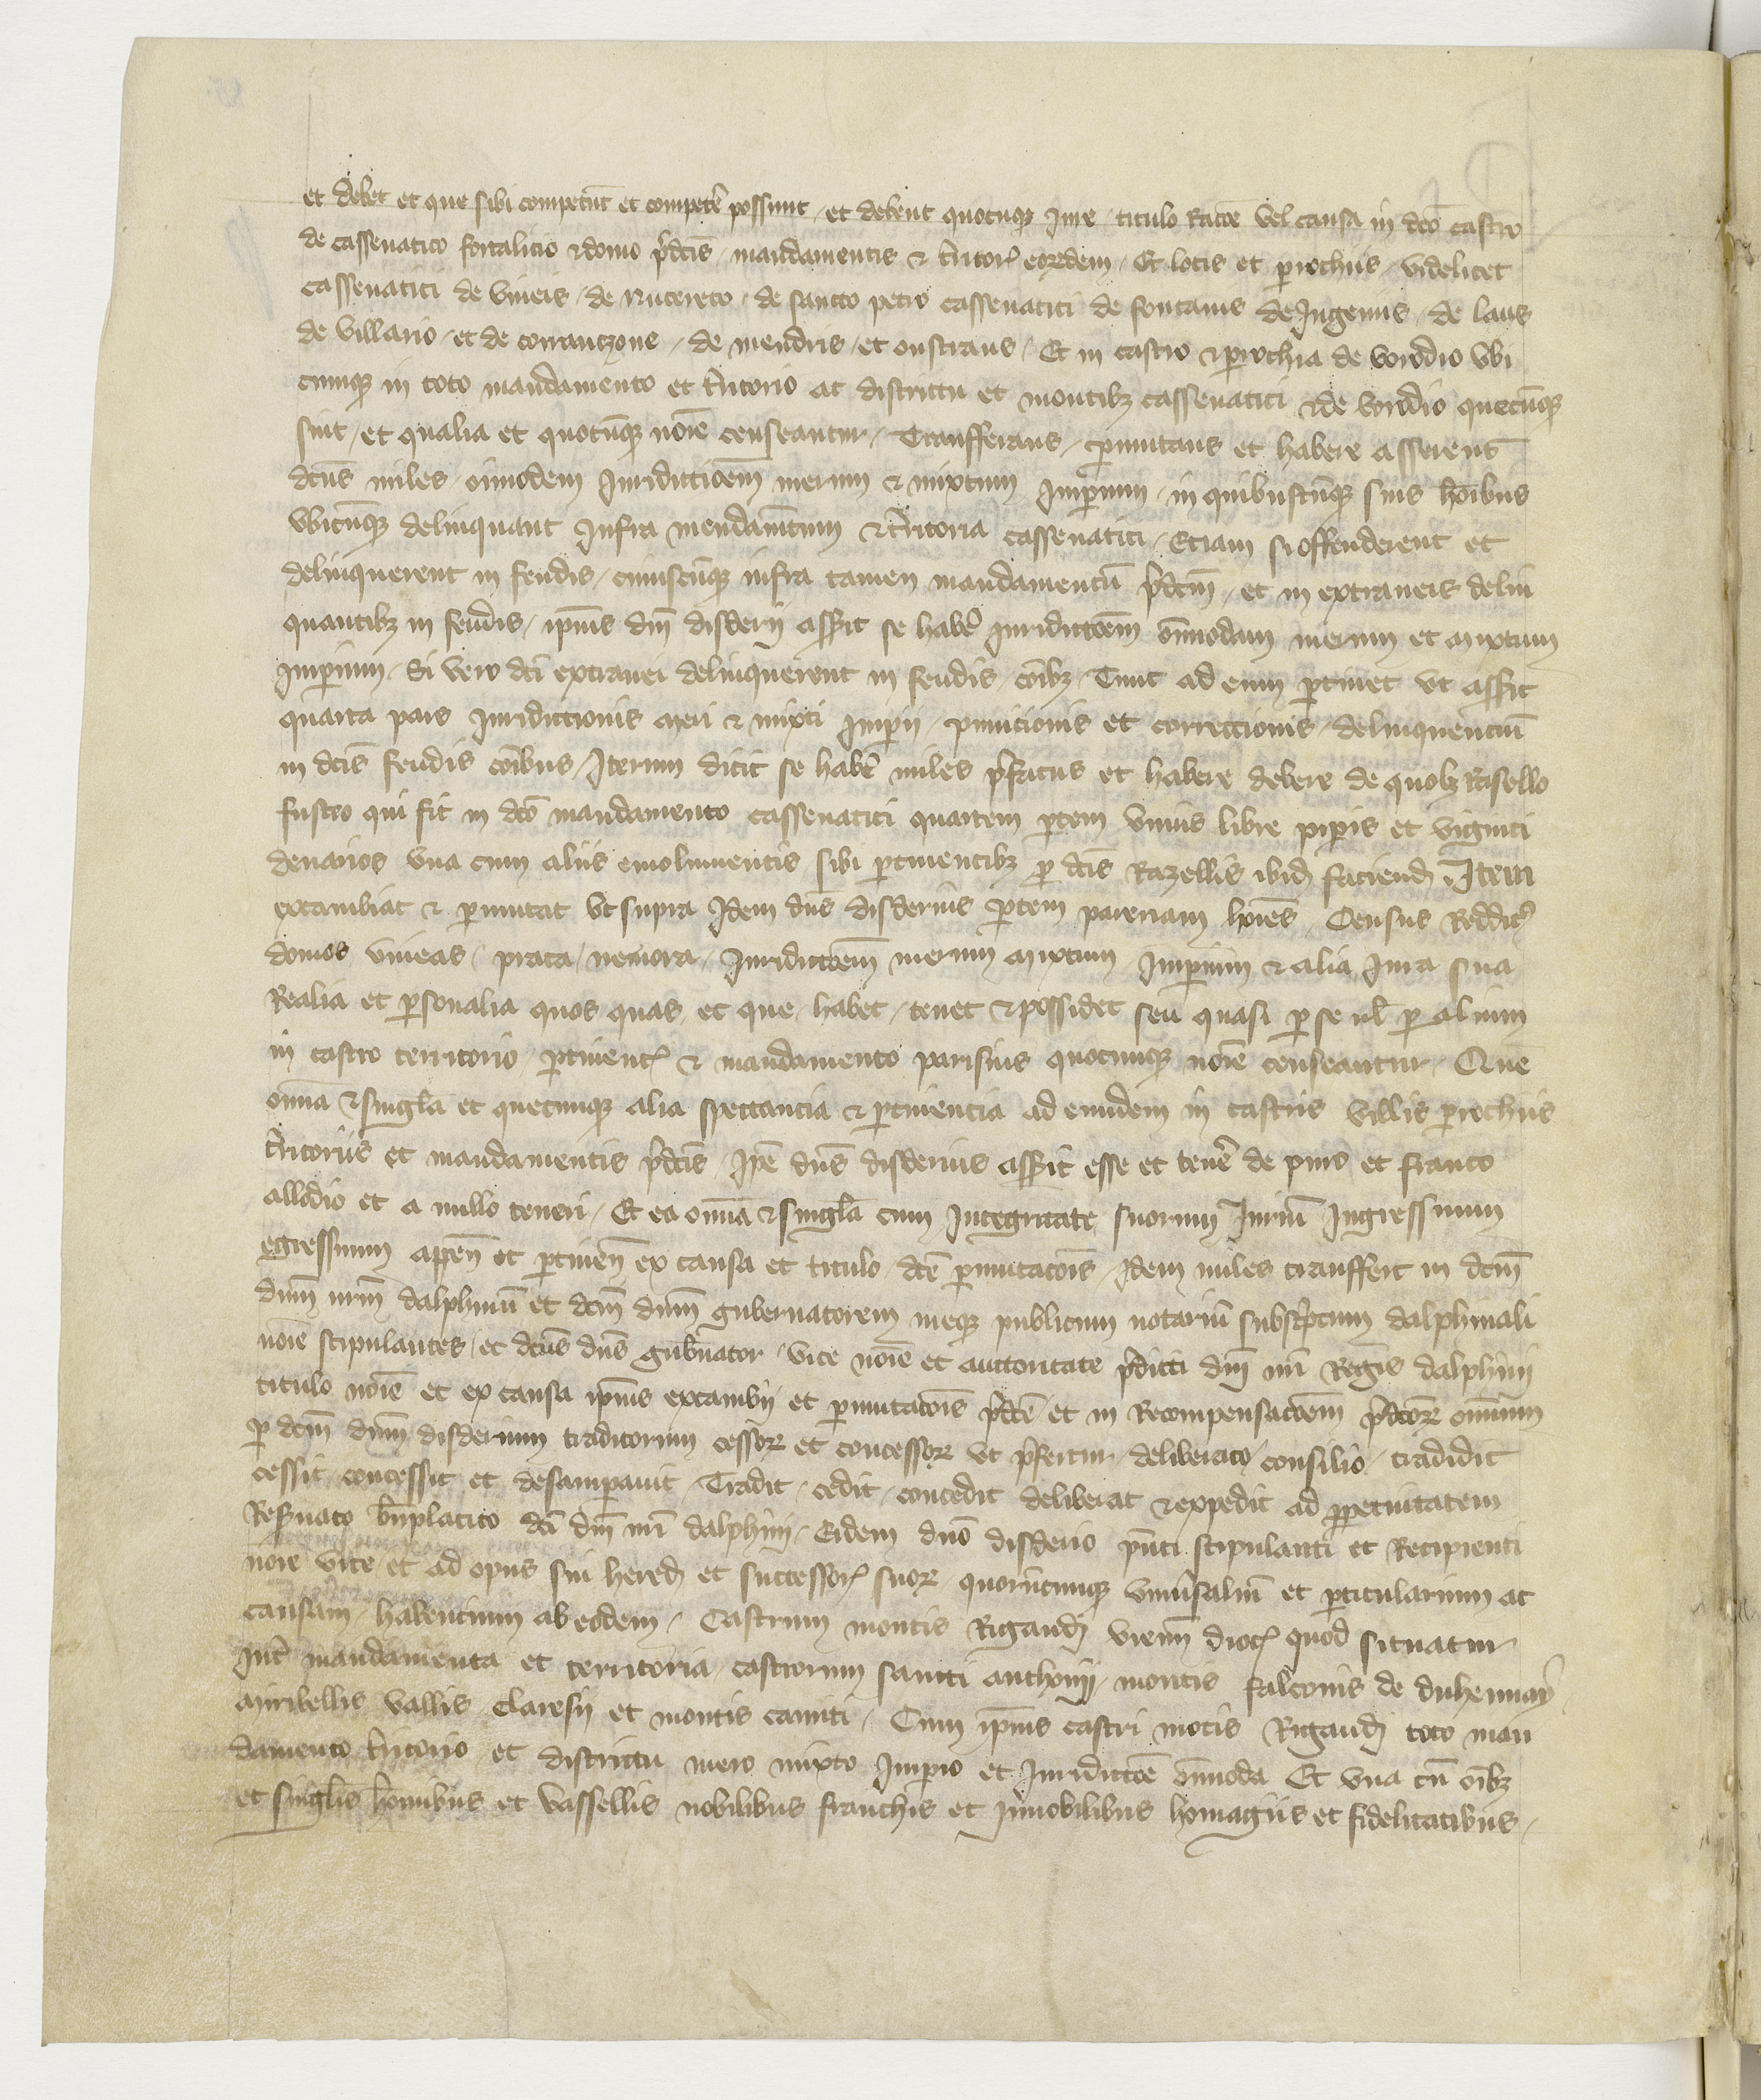 et debet et que sibi competũt et compet̃e possunt / et debent quocunqꝫ Jure / titulo Racõe vel causa in dc̃o castro
de cassenatico fortalicio & domo p̃dc̃is / mandamentis & t̃ritor̃ eoꝝdem / Et locis et parrochiis / videlicet
cassenatici de vineis / de Nucereto / de sancto petro cassenatici de fontanis de Jngenis / de laus
de villario / et de corranczone / de mendris / et onstrans / Et in castro & parrochia de vordio vbi
cumqꝫ in toto mandamento et t̃ritorio ac districtu et montibꝫ cassenatici & de vordio quecũqꝫ
sint / et qualia et quocũqꝫ noĩe censeantur / Transferans / ꝑmutans et habere asserens
dc̃us miles / oĩmodem Juridictioẽm merum & mixtum Jmꝑium / in quibuscũqꝫ suis hoĩbus
vbicũqꝫ delinquant Jnfra mendamẽtum & t̃ritoria cassenatici / Etiam si offenderent et
delinquerent in feudis / cuiuscũqꝫ infra tamen mandamentũ p̃dc̃m / et in extraneis delin
quantibꝫ in feudis / ip̃ius dñi disderij ass̃it se hab̃e Juridictoẽm oĩmodam merum et mixtum
Jmꝑium / Si vero dc̃i extranei delinquerent in feudis cõibꝫ / Tunc ad eum ꝑtinet vt ass̃it
quarta pars Juridictionis meri & mixti Jmꝑij / punitionis et correctionis / delinquenciũ
in dc̃is feudis cõibus / Jterum dicit se hab̃e miles p̃fatus et habere debere de quolꝫ Rasello
fusteo qui fit in dc̃o mandamento cassenatici quartem ꝑtem vnius libre piꝑis et viginti
denarios vna cum aliis emolumentis sibi ꝑtinentibꝫ ꝓ dc̃is Razellis ibid̃ faciend̃ . Jtem
excambiat & ꝑmutat vt supra Jdem dñs disderius ꝑtem pareriam hoĩes / Census Reddit̃
domos vineas / prata / nemora / Juridictoẽm merum mixtum Jmꝑium & alia Jura sua
Realia et ꝑsonalia quos quas / et que / habet / tenet & possidet seu quasi ꝑ se ul̃ ꝑ alium
in castro territorio / ꝑtinent̃ & mandamento parisius quocunqꝫ noĩe censeantur / Que
om̃ia & singl̃a et quecunqꝫ alia spectancia & ꝑtinencia ad eundem in castris villis parrochiis
t̃ritoriis et mandamentis p̃dc̃is / Jp̃e dñs disderius ass̃it esse et teñe de puro et franco
allodio et a nullo teneri / Et ea om̃ia & singl̃a cum Jntegritate suorum Juriũ Jngressuum
egressuum apeñ et ꝑtineñ ex causa et titulo dc̃e ꝑmutacõis / Jdem miles transfert in dc̃m
dñm nr̃m dalphinũ et dc̃m dñm gubernatorem meqꝫ publicum notariũ subsc̃ptum dalphinali
noĩe stipulantes / et dc̃us dñs gub̃nator / vice noĩe et auctoritate p̃dicti dñi nr̃i Regis dalphini
titulo noĩe et ex causa ip̃ius excambij et ꝑmutacõis p̃dc̃e et in Recompensacoẽm p̃dc̃oꝝ omnium
ꝑ dc̃m dñm disderium traditorum cessoꝝ et concessoꝝ vt p̃fertur / deliberato / consilio / tradidit
cessit / concessit et desamꝑauit / Tradit / cedit / concedit deliberat & expedit ad ꝑpetuitatem
Res̃uato bñplacito dc̃i dñi nr̃i dalphini / Eidem dño disderio p̃nti stipulanti et Recipienti
noĩe vice / et ad opus sui hered̃ et successor̃ suoꝝ / quorũcunqꝫ vniũsaliũ et ꝑticularium ac
causam / habencium ab eodem / Castrum montis Rigaudi vienñ dioc̃ quod situatur
Jnt̃ mandamenta et territoria / castrorum sancti anthonij / montis falconis de duhennay
miribellis vallis / Claresij et montis canuti / Cum ip̃ius castri mõtis Rigaudi toto man
damento t̃ritorio et districtu mero mixto Jmꝑio et Juridictõe oĩmoda Et vna cũ oĩbꝫ
et singl̃is hoĩnibus et vassellis nobilibus franchis et Jnnobilibus homagiis et fidelitatibus /